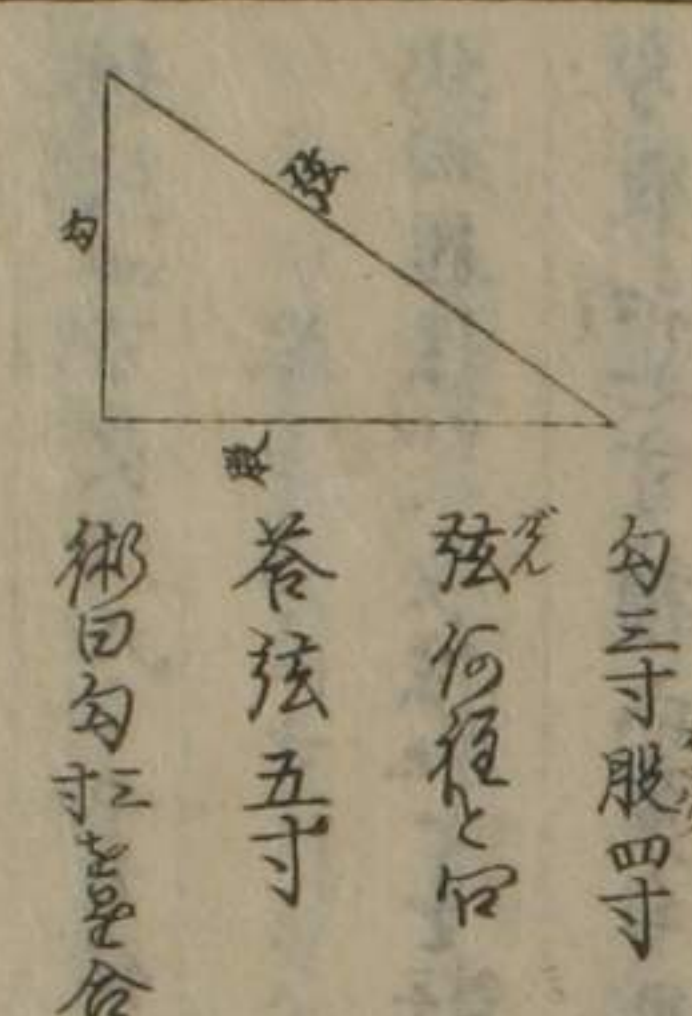 弦
勾
股
勾三寸股四寸
弦何程と问
げん
答弦五寸
術曰勾三寸を自合